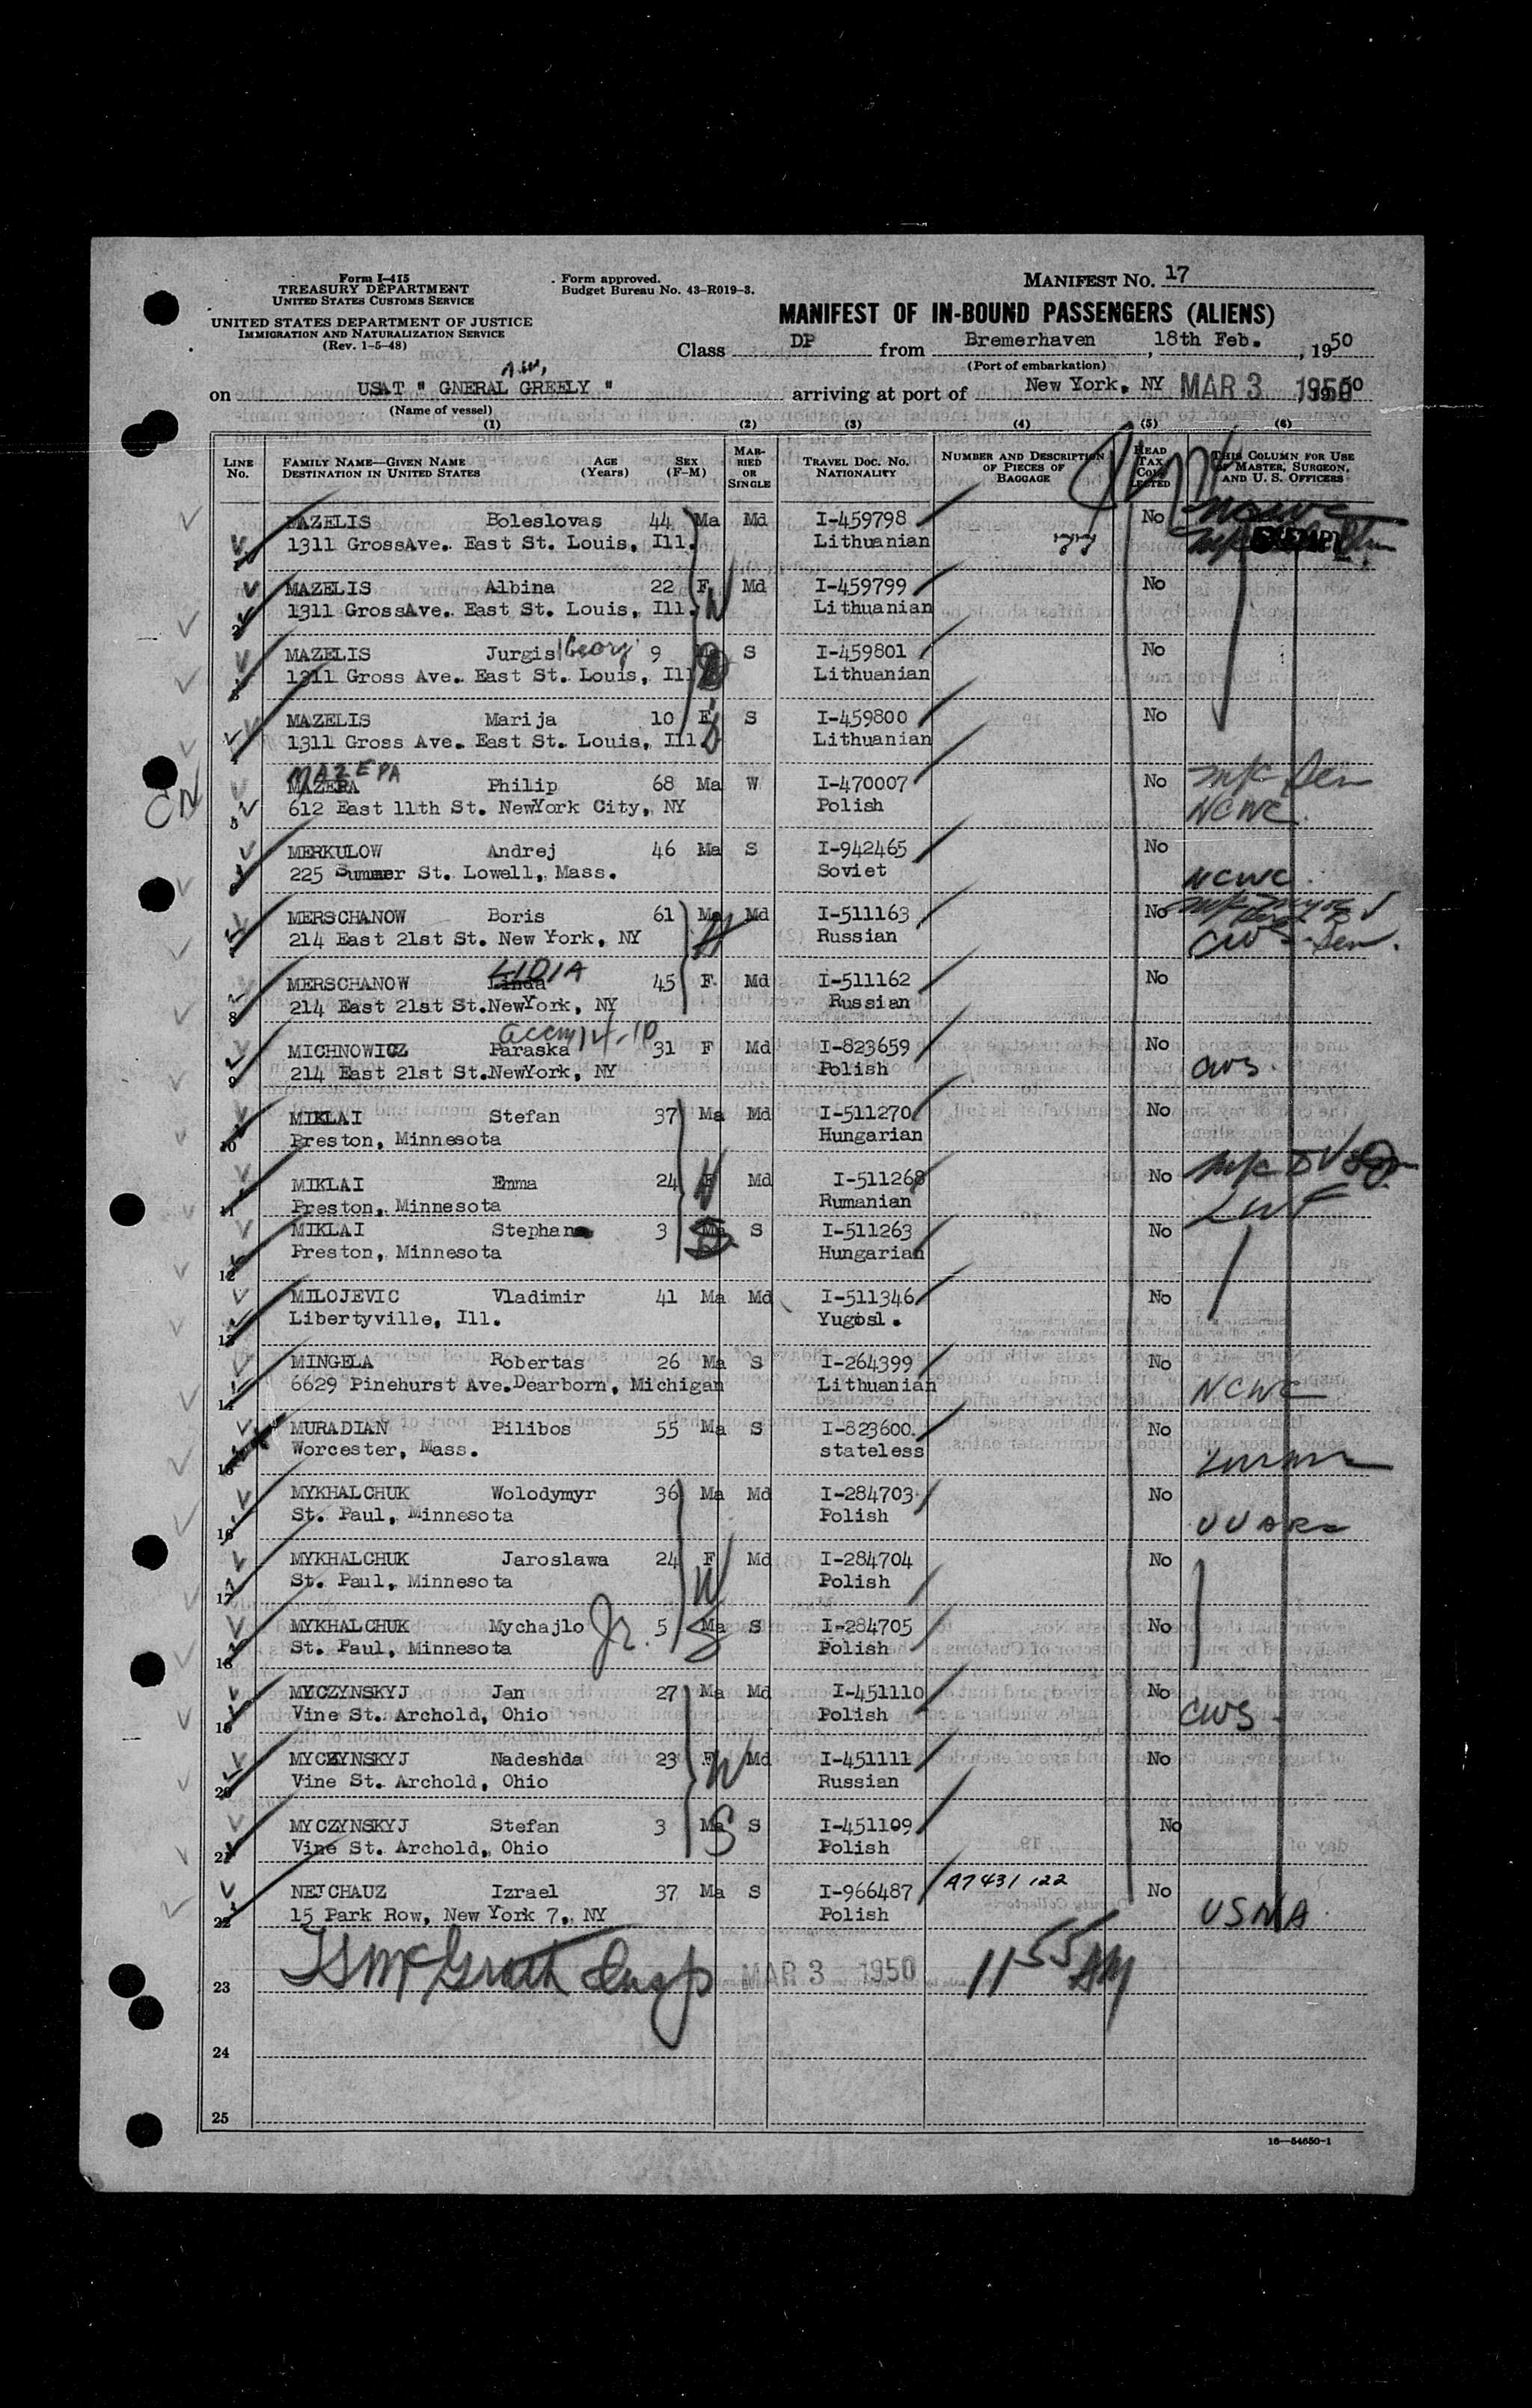 Form I-415
TREASURY DEPARTMENT
UNITED STATES CUSTOMS SERVICE
UNITED STATES DEPARTMENT OF JUSTICE
IMMIGRATION AND NATURALIZATION SERVICE
(Rev. 1-5-48)
Form approved.
Budget Bureau No. 43-R019-3.
MANIFEST NO. 17
MANIFEST OF IN-BOUND PASSENGERS (ALIENS)
Class DP from Bremerhaven, 18th Feb., 1950
(Port of embarkation)
on USAT " GNERAL A.W. GREELY " arriving at port of New York, NY MAR 3 1950
(Name of vessel)
(1) (2) (3) (4) (5) (6)
LINE No. FAMILY NAME—GIVEN NAME DESTINATION IN UNITED STATES AGE (Years) SEX (F-M) MARRIED OR SINGLE TRAVEL DOC. NO. NATIONALITY NUMBER AND DESCRIPTION OF PIECES OF BAGGAGE HEAD TAX COLLECTED THIS COLUMN FOR USE OF MASTER, SURGEON, AND U. S. OFFICERS
MAZELIS Boleslovas 44 Ma Md I-459798 No NCWC
1311 GrossAve. East St. Louis, Ill. Lithuanian
MAZELIS Albina 22 F Md I-459799 No
2 1311 GrossAve. East St. Louis, Ill. W Lithuanian
MAZELIS Jurgis Georg 9 S I-459801 No
3 1311 Gross Ave. East St. Louis, Ill Lithuanian
MAZELIS Marija 10 F S I-459800 No
1311 Gross Ave. East St. Louis, Ill. Lithuanian
MAZEPA
MAZEPA Philip 68 Ma W I-470007 No
CN 5 612 East 11th St. NewYork City, NY Polish NCWC.
MERKULOW Andrej 46 Ma S I-942465 No
225 Summer St. Lowell, Mass. Soviet NCWC
MERSCHANOW Boris 61 Ma Md I-511163 No
214 East 21st St. New York, NY Russian CWS
LIDIA
MERSCHANOW Linda 45 F. Md I-511162 No
8 214 East 21st St.NewYork, NY Russian
MICHNOWICZ Paraska 31 F Md I-823659 No
9 214 East 21st St.NewYork, NY Polish CWS.
MIKLAI Stefan 37 Ma Md I-511270 No
10 Preston, Minnesota Hungarian
MIKLAI Emma 24 F Md I-511268 No
11 Preston, Minnesota W Rumanian LWF
MIKLAI Stephan 3 Ma S I-511263 No
12 Preston, Minnesota Hungarian
MILOJEVIC Vladimir 41 Ma Md I-511346 No
13 Libertyville, Ill. Yugosl.
MINGELA Robertas 26 Ma S I-264399 No
14 6629 Pinehurst Ave.Dearborn, Michigan Lithuanian NCWC
MURADIAN Pilibos 55 Ma S I-823600. No
15 Worcester, Mass. stateless
MYKHALCHUK Wolodymyr 36 Ma Md I-284703 No
16 St. Paul, Minnesota Polish UUARC
MYKHALCHUK Jaroslawa 24 F Md I-284704 No
17 St. Paul, Minnesota W Polish
MYKHALCHUK Mychajlo Jr. 5 Ma S I-284705 No
18 St. Paul, Minnesota S Polish
MYCZYNSKYJ Jan 27 Ma Md I-451110 No
19 Vine St. Archold, Ohio Polish CWS
MYCZYNSKYJ Nadeshda 23 F Md I-451111 No
20 Vine St. Archold, Ohio W Russian
MYCZYNSKYJ Stefan 3 Ma S I-451109 No
21 Vine St. Archold, Ohio S Polish
NEJCHAUZ Izrael 37 Ma S I-966487 A7431122 No
22 15 Park Row, New York 7, NY Polish USNA
23 McGrath Insp MAR 3 1950 11 55 AM
24
25
16—54650-1